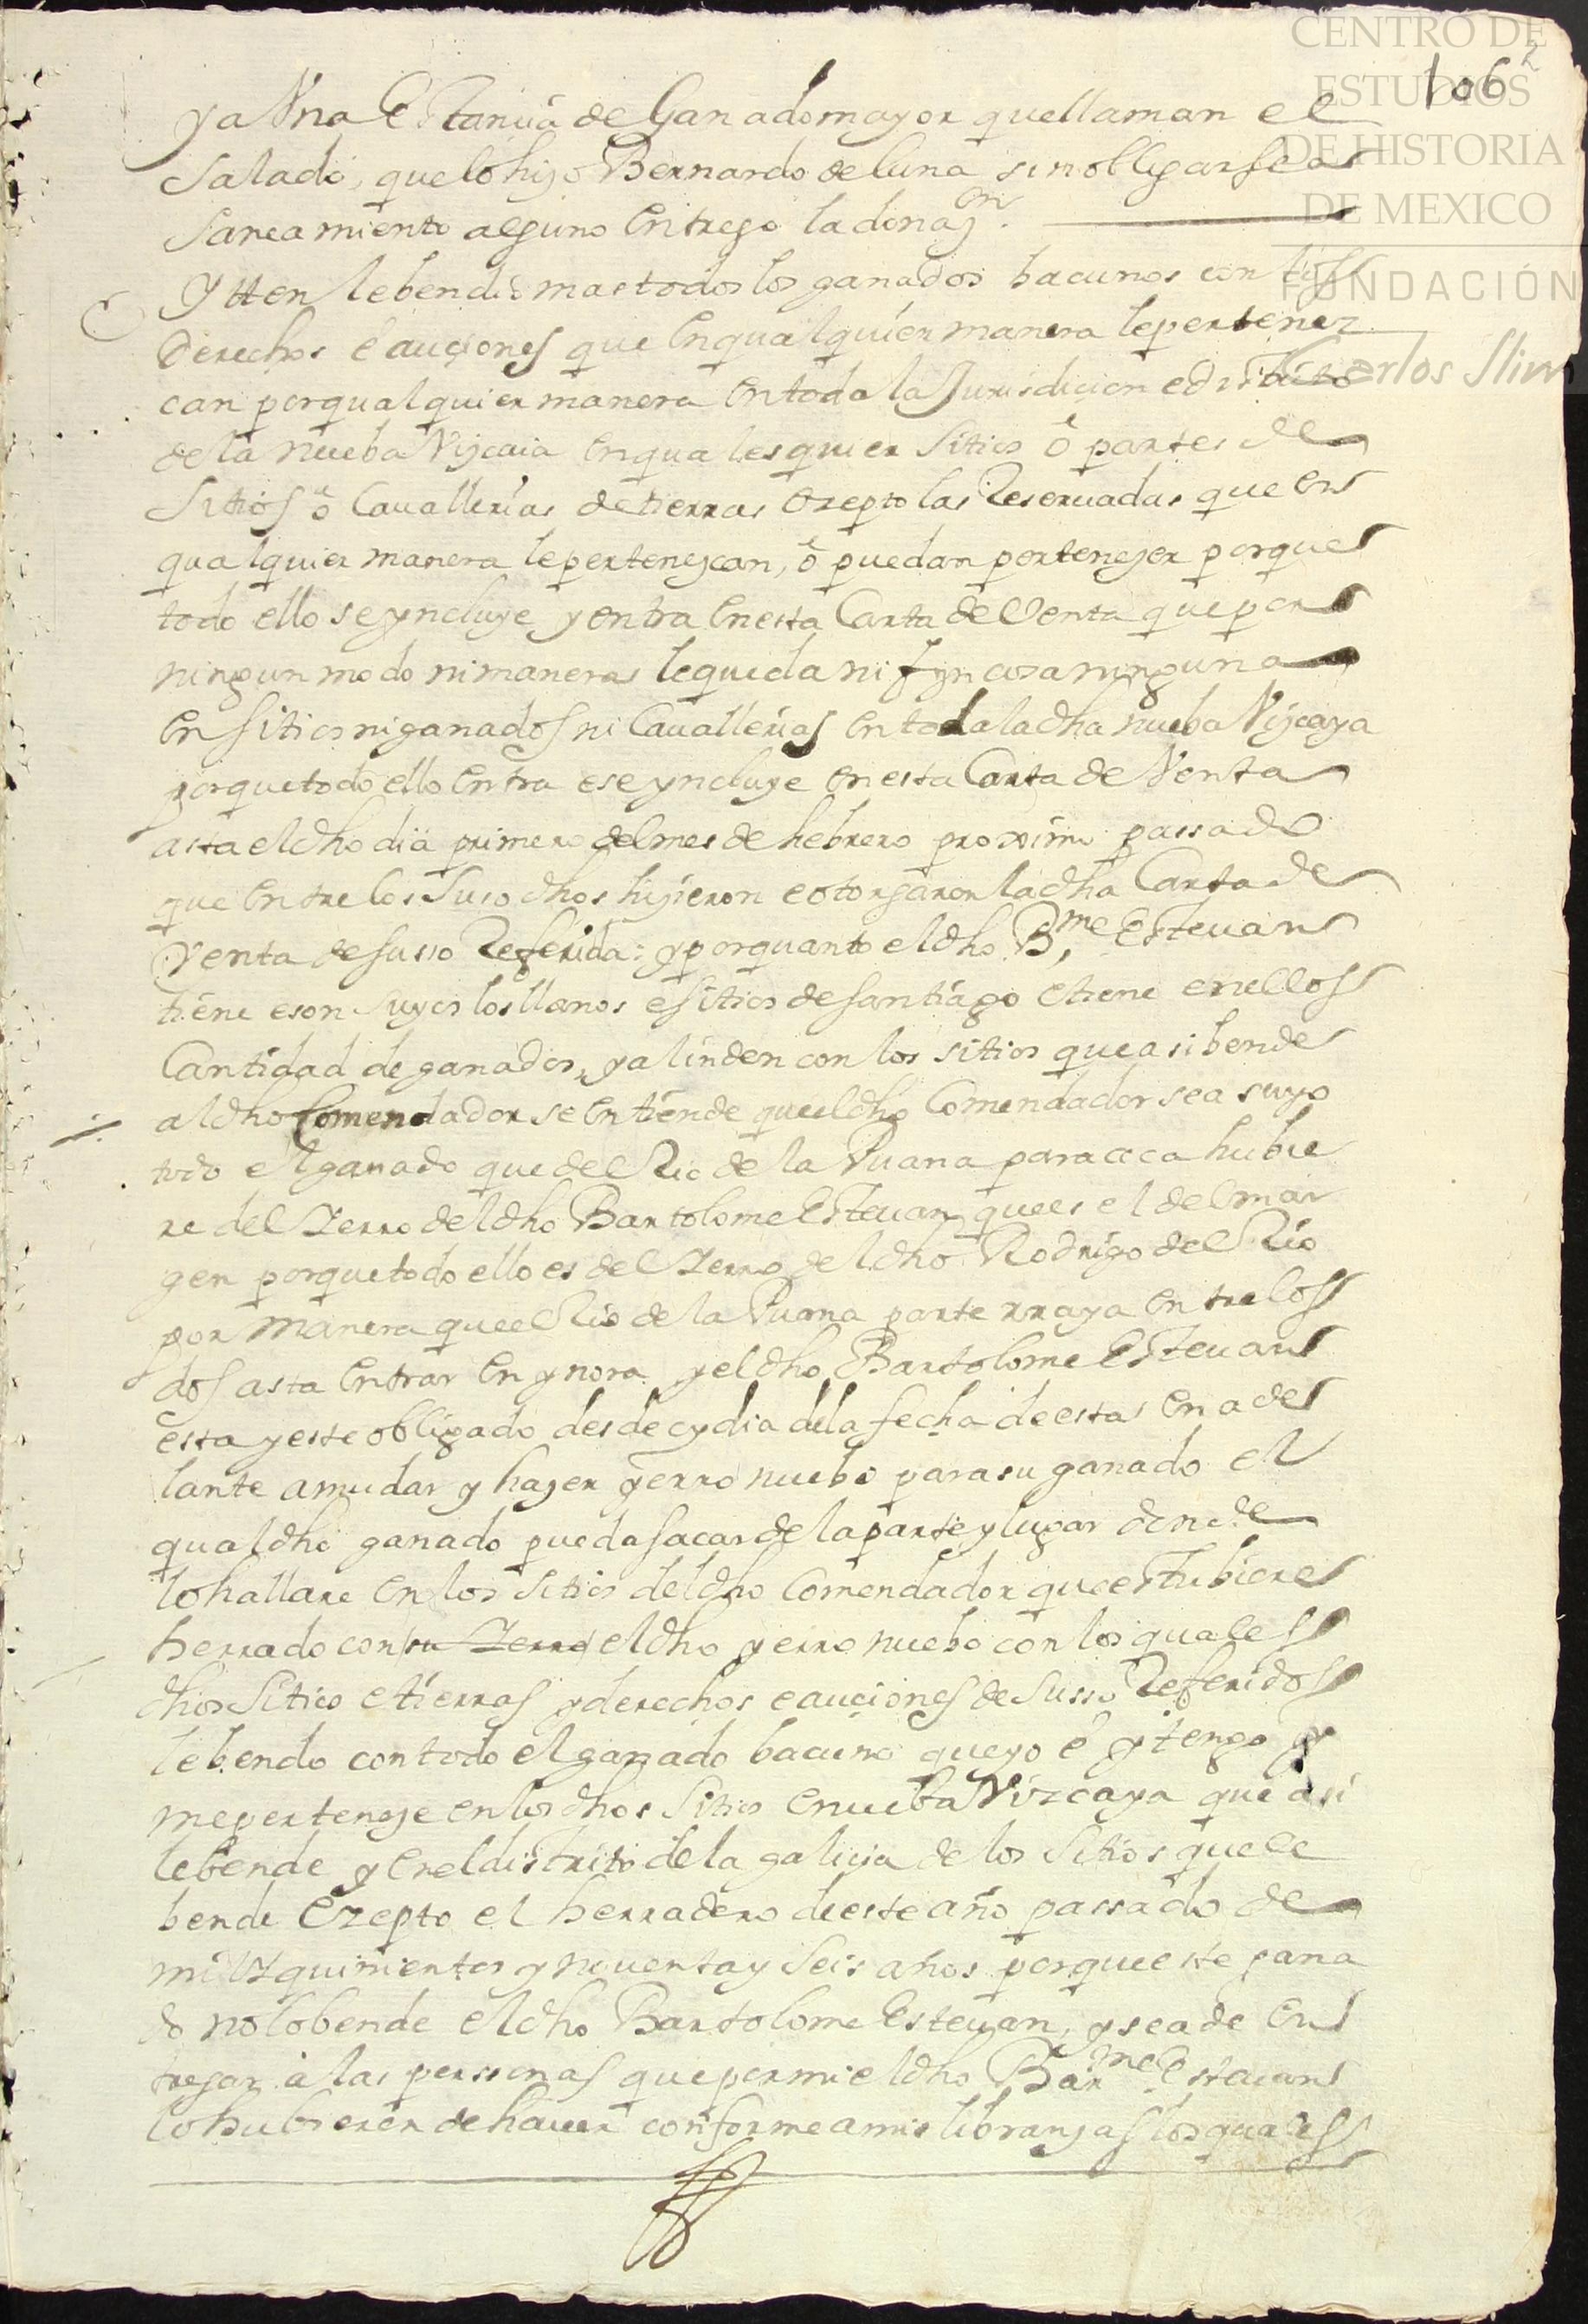 CENTRO DE
ESTUDIOS
DE HISTORIA
DE MEXICO
FUNDACIÓN
Carlos Slim
106
ya Vna Estancia de Ganado mayor que llaman el
Salado, que lo hizo Bernardo de luna sin obligarse a
Saneamiento alguno Entrego la donaz.on
Ytten le bendio mas todos los ganados bacunos con los
derechos e auciones que en qualquier manera le pertenez
can por qualquier manera en toda la Jurisdicion e distrito
de la nueba Vizcaia en qualesquier Sitios ó partes de
Sitios ó Cauallerias de tierras Ezepto las Reseruadas que en
qualquier manera le pertenezcan, ó puedan pertenezer porque
todo ello se yncluye y entra en esta Carta de Venta que por
ningun modo ni manera le queda ni fyn cosa ninguna
en sitios ni ganados ni Cauallerias en toda la dha nueba Vizcaya
porque todo ello entra e se yncluye en esta Carta de Venta
asta el dho dia primero del mes de hebrero proximo passado
que entre los Suso dhos hizieron e otorgaron la dha Carta de
Venta de susso Referida: y por quanto el dho B.me Esteuan
tiene e son suyos los llanos e sitios de santiago e tiene en ellos
Cantidad de ganados, ya linden con los sitios que asi bende
al dho Comendador se entiende que el dho Comendador sea suyo
todo el ganado que del Rio de la Puana para aca hubie
re del Zerro del dho Bartolome Esteuan que es el del mar
gen porque todo ello es del Zerro del dho Rodrigo del Rio
por manera que el Rio de la Puana parte rraya entre los
dos asta entrar en ynora y el dho Bartolome Esteuan
esta y este obligado desde oy dia de la fecha de esta en ade
lante a mudar y hazer yerro nuebo para su ganado el
qual dho ganado pueda sacar de la parte y lugar donde
lo hallare en los sitios del dho Comendador que estubiere
herrado con su Zerro el dho yerro nuebo con los quales
dhos Sitios e tierras y derechos e auciones de susso Referidos
le bendo con todo el ganado bacuno que yo é y tengo y
me perteneze en los dhos Sitios e nueba Vizcaya que asi
le bende y en el distrito de la galicia de los Sitios que le
bende Ezepto el herradero de este año passado de
mill quinientos y nouenta y seis años porque este gana
do no lo bende el dho Bartolome Esteuan, y se a de en
tregar à las perssonas que por mi el dho Bar.me Esteuan
lo hubieren de hauer conforme a mis libranzas los quales